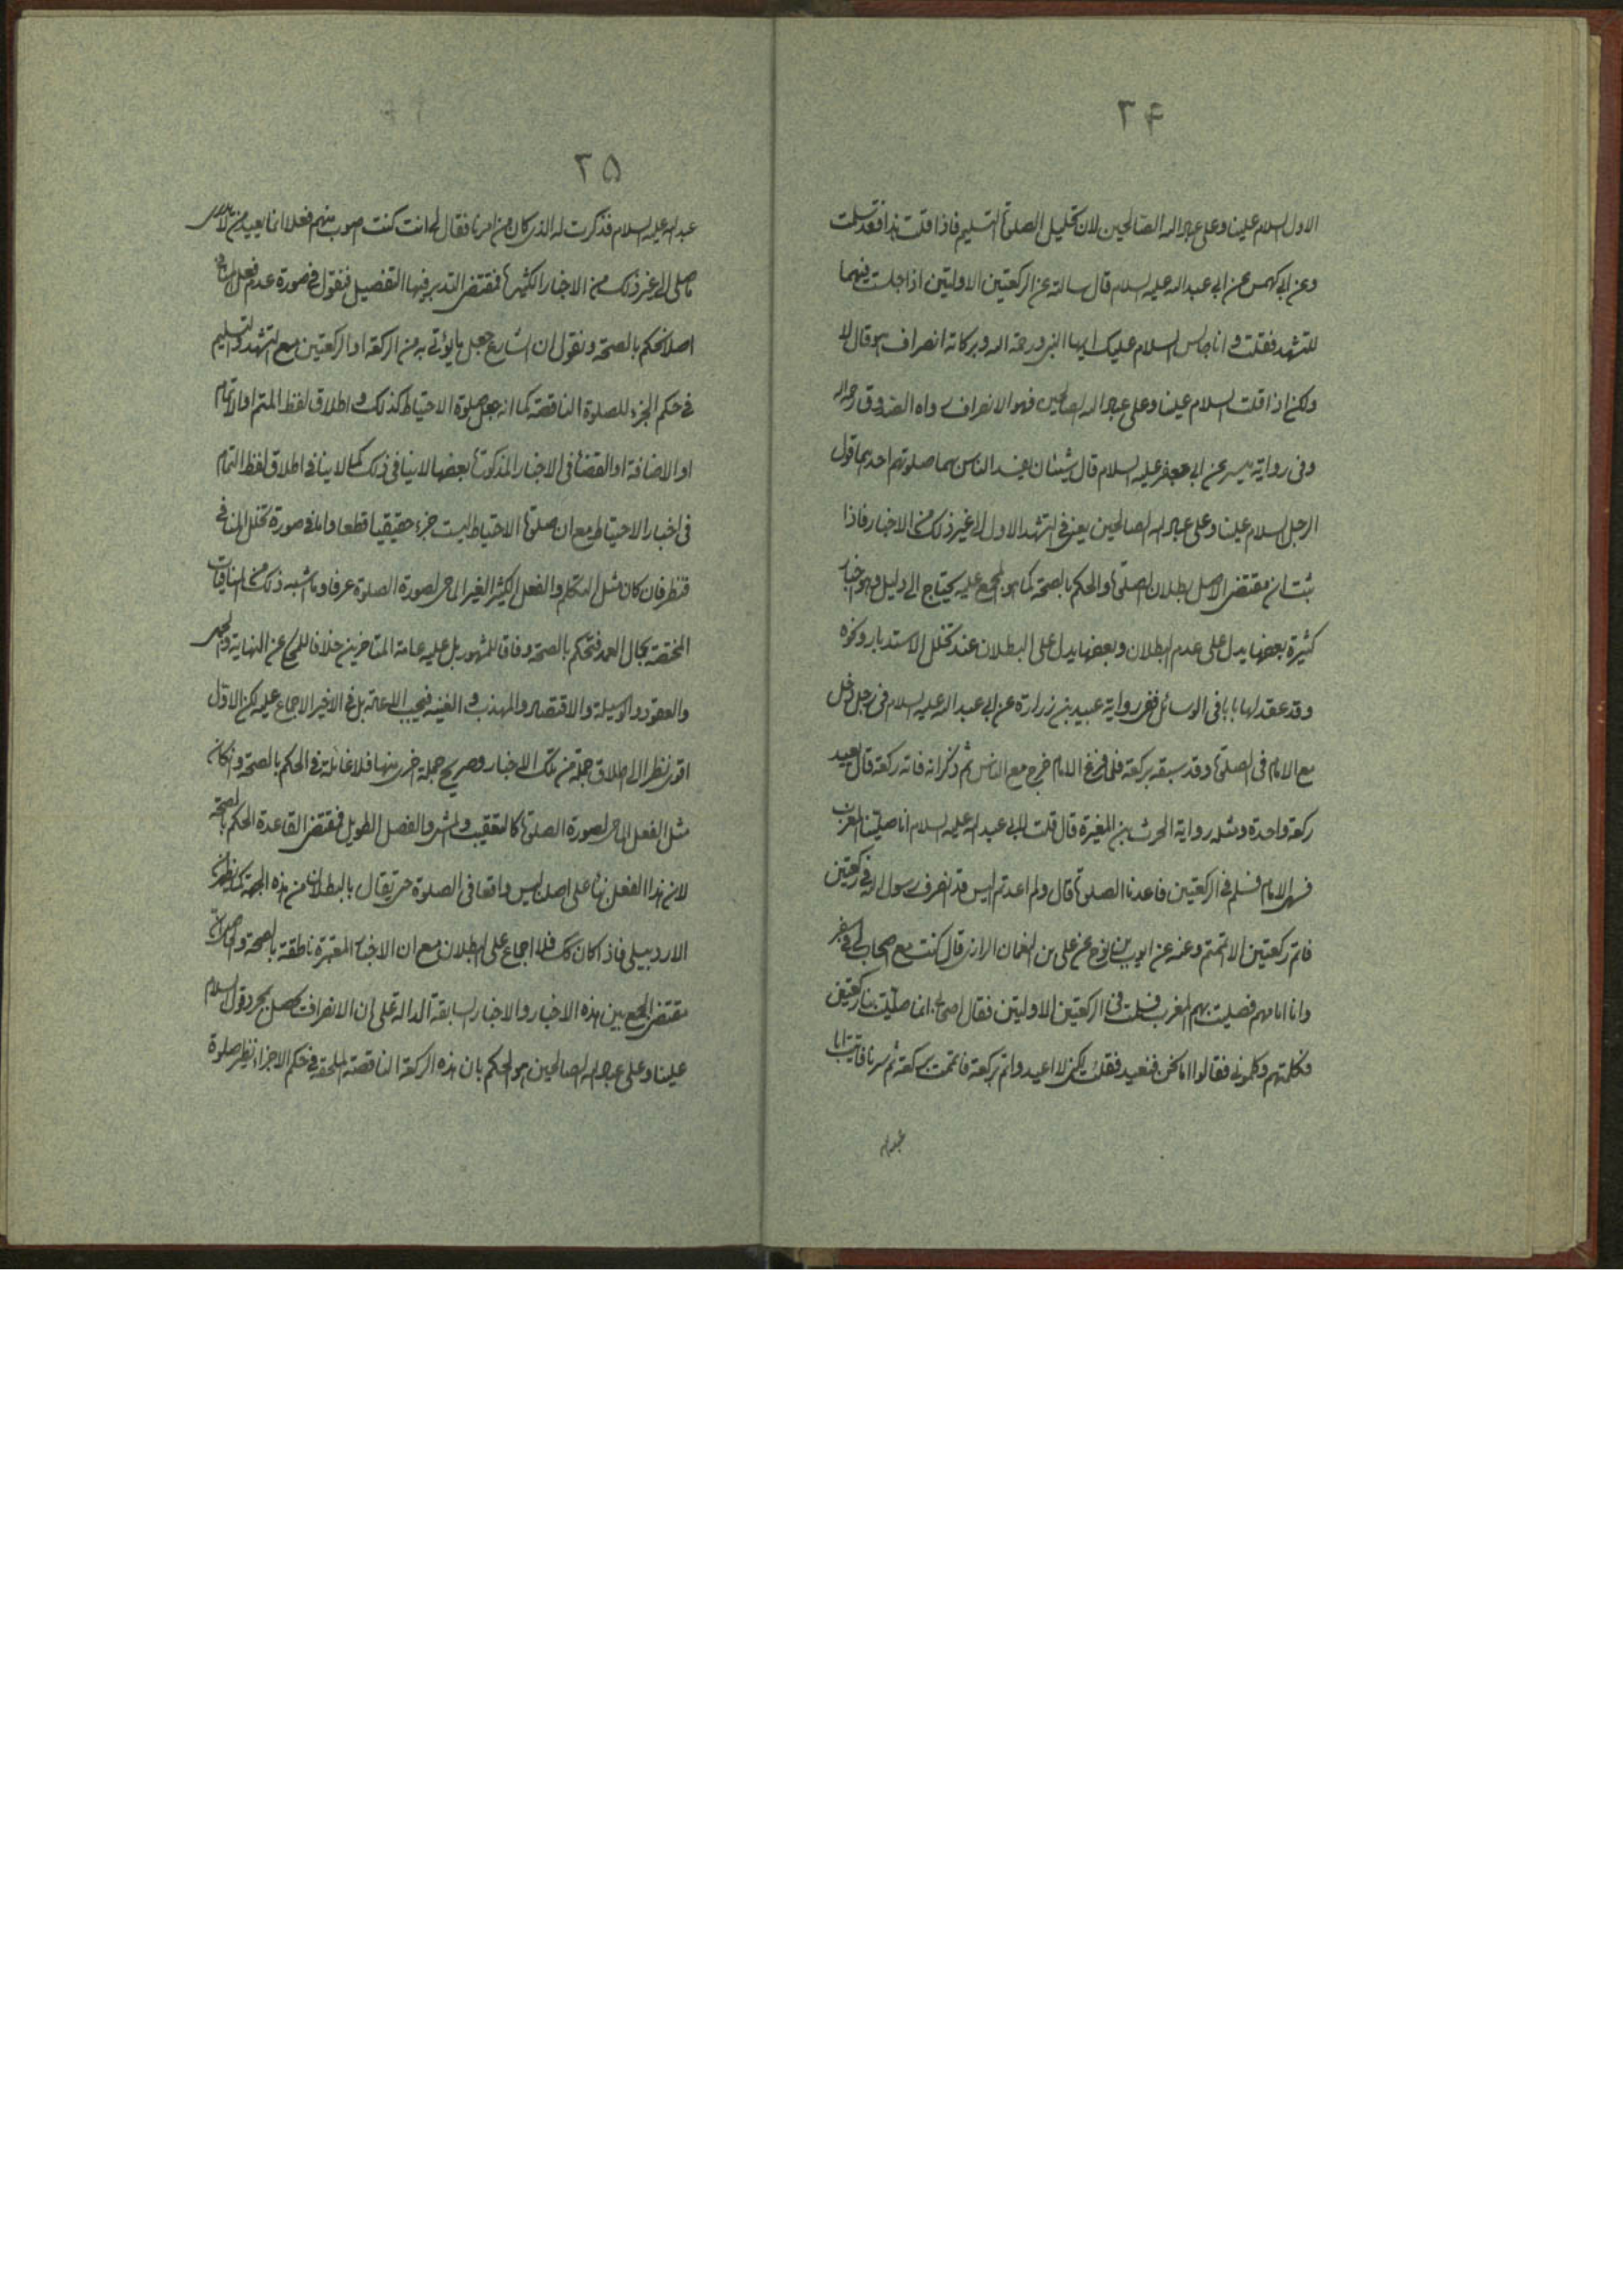 ۳۴
الاول السلام علينا وعلى عباد الله الصالحين لان تحليل الصلوة التسليم فاذا قلت هذا فقد سلمت
وعن ابي كهمس عن ابي عبد الله عليه السلام قال سالته عن الركعتين الاولتين اذا جلست فيهما
للتشهد فقلت و انا جالس السلام عليك ايها النبي ورحمة الله وبركاته انصراف هو قال لا
ولكن اذا قلت السلام علينا وعلى عباد الله الصالحين فهو الانصراف رواه الصدوق
وفى رواية ميسر عن ابي جعفر عليه السلام قال شيئان يفسد الناس بهما صلوتهم احديهما قول
الرجل السلام علينا وعلى عباد الله الصالحين يعني في التشهد الاول الى غير ذلك من الاخبار فاذا
ثبت ان مقتضى الاصل بطلان الصلوة والحكم بالصحة كما هو المجمع عليه يحتاج الى دليل وهو اخبار
كثيرة بعضها يدل على عدم البطلان وبعضها يدل على البطلان عند تخلل الاستدبار ونحوه
وقد عقد لها بابا فى الوسائل ففى رواية عبيد بن زرارة عن ابي عبد الله عليه السلام فى رجل دخل
مع الامام فى الصلوة وقد سبقه بركعة فلما فرغ الامام خرج مع الناس ثم ذكر انه فاته ركعة قال يعيد
ركعة واحدة ومثله رواية الحرث بن المغيرة قال قلت لابي عبد الله عليه السلام انا صلينا المغرب
فسهى الامام فسلم فى الركعتين فاعدنا الصلوة قال ولم اعدتم اليس قد انصرف رسول الله في ركعتين
فاتم ركعتين الا اتممتم وعنه عن ايوب بن نوح عن على بن النعمان الرازي قال كنت مع اصحاب لي في سفر
وانا امامهم فصليت بهم المغرب فسلمت فى الركعتين الاولتين فقال اصحابي انما صليت بنا ركعتين
فكلمتهم وكلموني فقالوا اما نحن فنعيد فقلت لكني لا اعيد واتم بركعة فاتممت بركعة ثم سرنا فاتيت ابا
عبد الله
۳۵
عبد الله عليه السلام فذكرت له الذي كان من امرنا فقال لي انت كنت اصوب منهم فعلا انما يعيد من لا يدري
ما صلى الى غير ذلك من الاخبار الكثيرة فمقتضى التدبر فيها التفصيل فنقول فى صورة عدم فعل المنافي
اصلا نحكم بالصحة ونقول ان الشارع جعل ما يؤتى به من الركعة او الركعتين مع التشهد والتسليم
فى حكم الجزء للصلوة الناقصة كما انه جعل صلوة الاحتياط كذلك و اطلاق لفظ المتم او الاتمام
او الاضافة او القضاء فى الاخبار المذكورة بعضها لا ينافى ذلك كما لا ينافى اطلاق لفظ التمام
فى اخبار الاحتياط مع ان صلوة الاحتياط ليست جزء حقيقيا قطعا واما فى صورة تخلل المنافي
فننظر فان كان مثل التكلم والفعل الكثير الغير الماحى لصورة الصلوة عرفا وما شبه ذلك من المنافيات
المختصة بحال العمد فنحكم بالصحة وفاقا للمشهور بل عليه عامة المتاخرين خلافا للمحكي عن النهاية
والعقود والوسيلة والاقتصاد والمهذب و الغنية فيجب الاعادة بل في الاخير الاجماع عليه لكن الاول
اقوى نظرا الى اطلاق جملة من تلك الاخبار وصريح جملة اخرى منها فلا غائلة فى الحكم بالصحة وان كان
مثل الفعل الماحى لصورة الصلوة كالتعقيب والمشى والفصل الطويل فمقتضى القاعدة الحكم بالصحة
لان هذا الفعل بناء على اصل ليس واقعا فى الصلوة حتى يقال بالبطلان من هذه الجهة كما يظهر من
الاردبيلى فاذا كان كك فلا اجماع على البطلان مع ان الاخبار المعتبرة ناطقة بالصحة
مقتضى الجمع بين هذه الاخبار والاخبار السابقة الدالة على ان الانصراف يحصل بمجرد قول السلام
علينا وعلى عباد الله الصالحين هو الحكم بان هذه الركعة الناقصة الملحقة فى حكم الاجزاء نظير صلوة